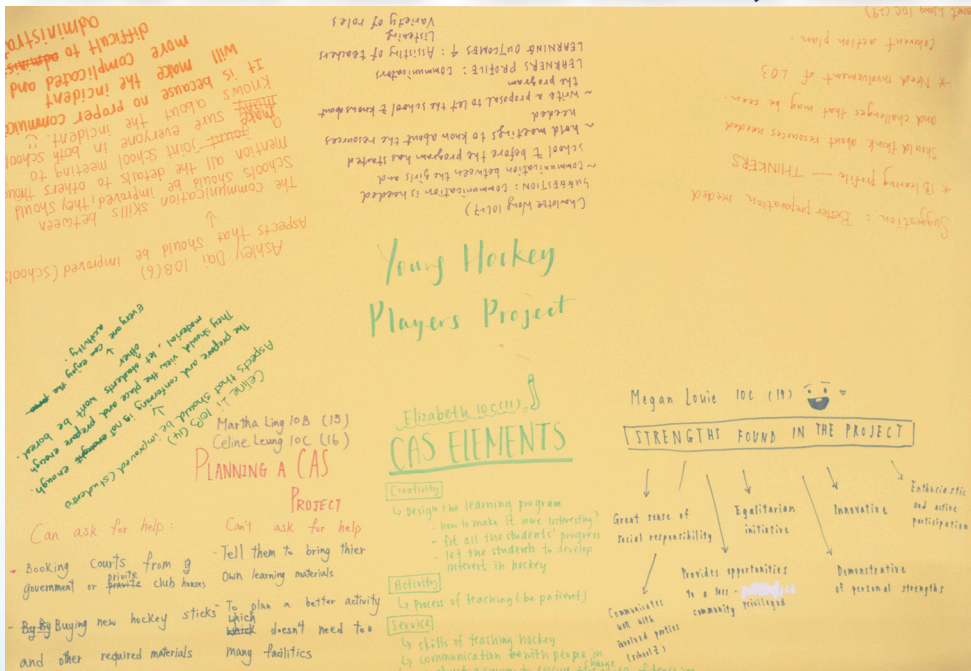 Young Hockey
Players Project
Ashley Dai 10B(6)
Aspects that should be improved (schools
↓
The communication skills between
schools should be improved, they should
mention all the details to others
a joint school meeting to
make sure everyone in both school
knows about the incident.
It is because no proper
will make the incident
more complicated and
difficult to
administra
Charlotte Wong 10C(7)
SUGGESTION: Communication is needed
~ communication between the girls and
school E before the program has started
~ hold meetings to know about the resources
needed
~ write a proposal to let the school E know about
the program
LEARNERS PROFILE: Communicators
LEARNING OUTCOMES 4: Assisting of teachers
Listening
Variety of roles
10C (29)
Suggestion: Better preparation needed
* IB learning profile — THINKERS
Should think about resources needed
and challenges that may be seen.
* Need involvement of LO3
Coherent action plan.
Celine Li 10B (14)
Aspects that should be improved (students
↓
The prepare and conforming is not enough.
They should view the place and prepare enough
material, let other students won't be bored.
↓
Every one can enjoy the
activity.
Martha Ling 10B (15)
Celine Leung 10C (16)
PLANNING A CAS
PROJECT
Can ask for help:
- Booking courts from g
government or privite club houses
- Buying new hockey sticks
and other required materials
Can't ask for help
- Tell them to bring thier
own learning materials
- To plan a better activity
which doesn't need too
many facilities
Elizabeth 10C(11)
CAS ELEMENTS
Creativity
↳ Design the learning program
- how to make it more interesting?
- fit all the students' progress
- let the students to develop
interest in hockey
Activity
↳ process of teaching (be patient)
Service
↳ skills of teaching hockey
↳ communication with people in
Megan Louie 10C (19)
STRENGTHS FOUND IN THE PROJECT
Great sense of
social responsibility
Communicates
well with
involved parties
(school E)
Provides opportunities
to a less-
community privileged
Egalitarian
initiative
Demonstrative
of personal strengths
Innovative
Enthusiastic
and active
participation